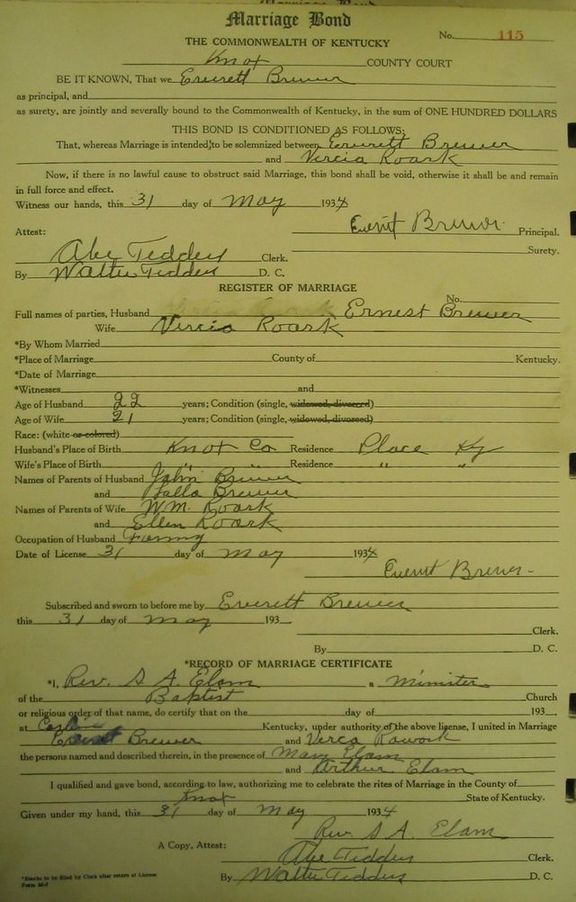 Marriage Bond
No. 115
THE COMMONWEALTH OF KENTUCKY
Knox COUNTY COURT
BE IT KNOWN, That we Everett Brewer
as principal, and
as surety, are jointly and severally bound to the Commonwealth of Kentucky, in the sum of ONE HUNDRED DOLLARS
THIS BOND IS CONDITIONED AS FOLLOWS:
That, whereas Marriage is intended to be solemnized between Everett Brewer
and Vercia Roark
Now, if there is no lawful cause to obstruct said Marriage, this bond shall be void, otherwise it shall be and remain
in full force and effect.
Witness our hands, this 31 day of May 1934
Everit Brewer Principal.
Attest: Surety.
Abe Tedders Clerk.
By Walter Tedders D. C.
REGISTER OF MARRIAGE
No.
Full names of parties, Husband Ernest Brewer
Wife Vercia Roark
*By Whom Married
*Place of Marriage County of Kentucky.
*Date of Marriage
*Witnesses and
Age of Husband 22 years; Condition (single, widowed, divorced)
Age of Wife 21 years; Condition (single, widowed, divorced)
Race: (white or colored)
Husband's Place of Birth Knox Co Residence Place Ky
Wife's Place of Birth " " Residence " "
Names of Parents of Husband John Brewer
and Brewer
Names of Parents of Wife WM. Roark
and Ellen Roark
Occupation of Husband Farming
Date of License 31 day of May 1934
Everit Brewer
Subscribed and sworn to before me by Everett Brewer
this 31 day of May 193
Clerk.
By D. C.
*RECORD OF MARRIAGE CERTIFICATE
*I, Rev. S A. Elam a Minister
of the Baptist Church
or religious order of that name, do certify that on the day of 193
at Kentucky, under authority of the above license, I united in Marriage
Everett Brewer and Verca
the persons named and described therein, in the presence of Mary Elam
and Arthur Elam
I qualified and gave bond, according to law, authorizing me to celebrate the rites of Marriage in the County of
Knox State of Kentucky.
Given under my hand, this 31 day of May 1934
Rev. S A. Elam
A Copy, Attest: Abe Tedders Clerk.
By Walter Tedders D. C.
*Blanks to be filled by Clerk after return of License